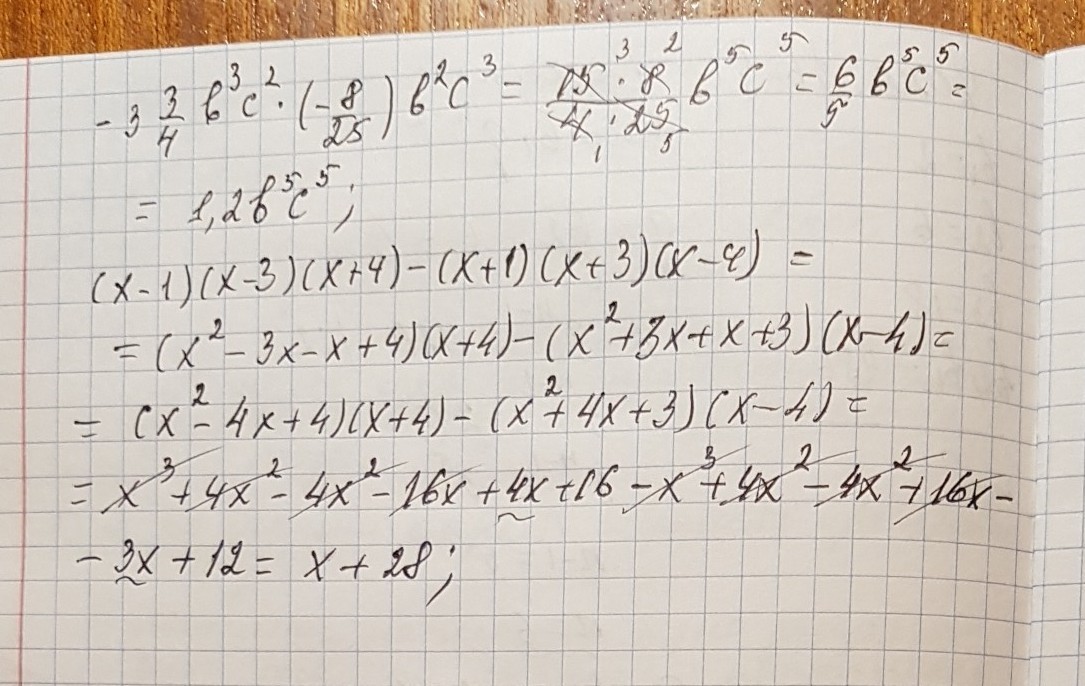 -3 3/4 b³c² · (-8/25) b²c³ = 15·8/4·25 3 2 1 5 b⁵c⁵ = 6/5 b⁵c⁵ =
= 1,2b⁵c⁵;
(x-1)(x-3)(x+4)-(x+1)(x+3)(x-4) =
= (x²-3x-x+4)(x+4)-(x²+3x+x+3)(x-4)=
= (x²-4x+4)(x+4)-(x²+4x+3)(x-4)=
= x³+4x²-4x²-16x+4x+16-x³+4x²-4x²+16x-
-3x+12= x+28;